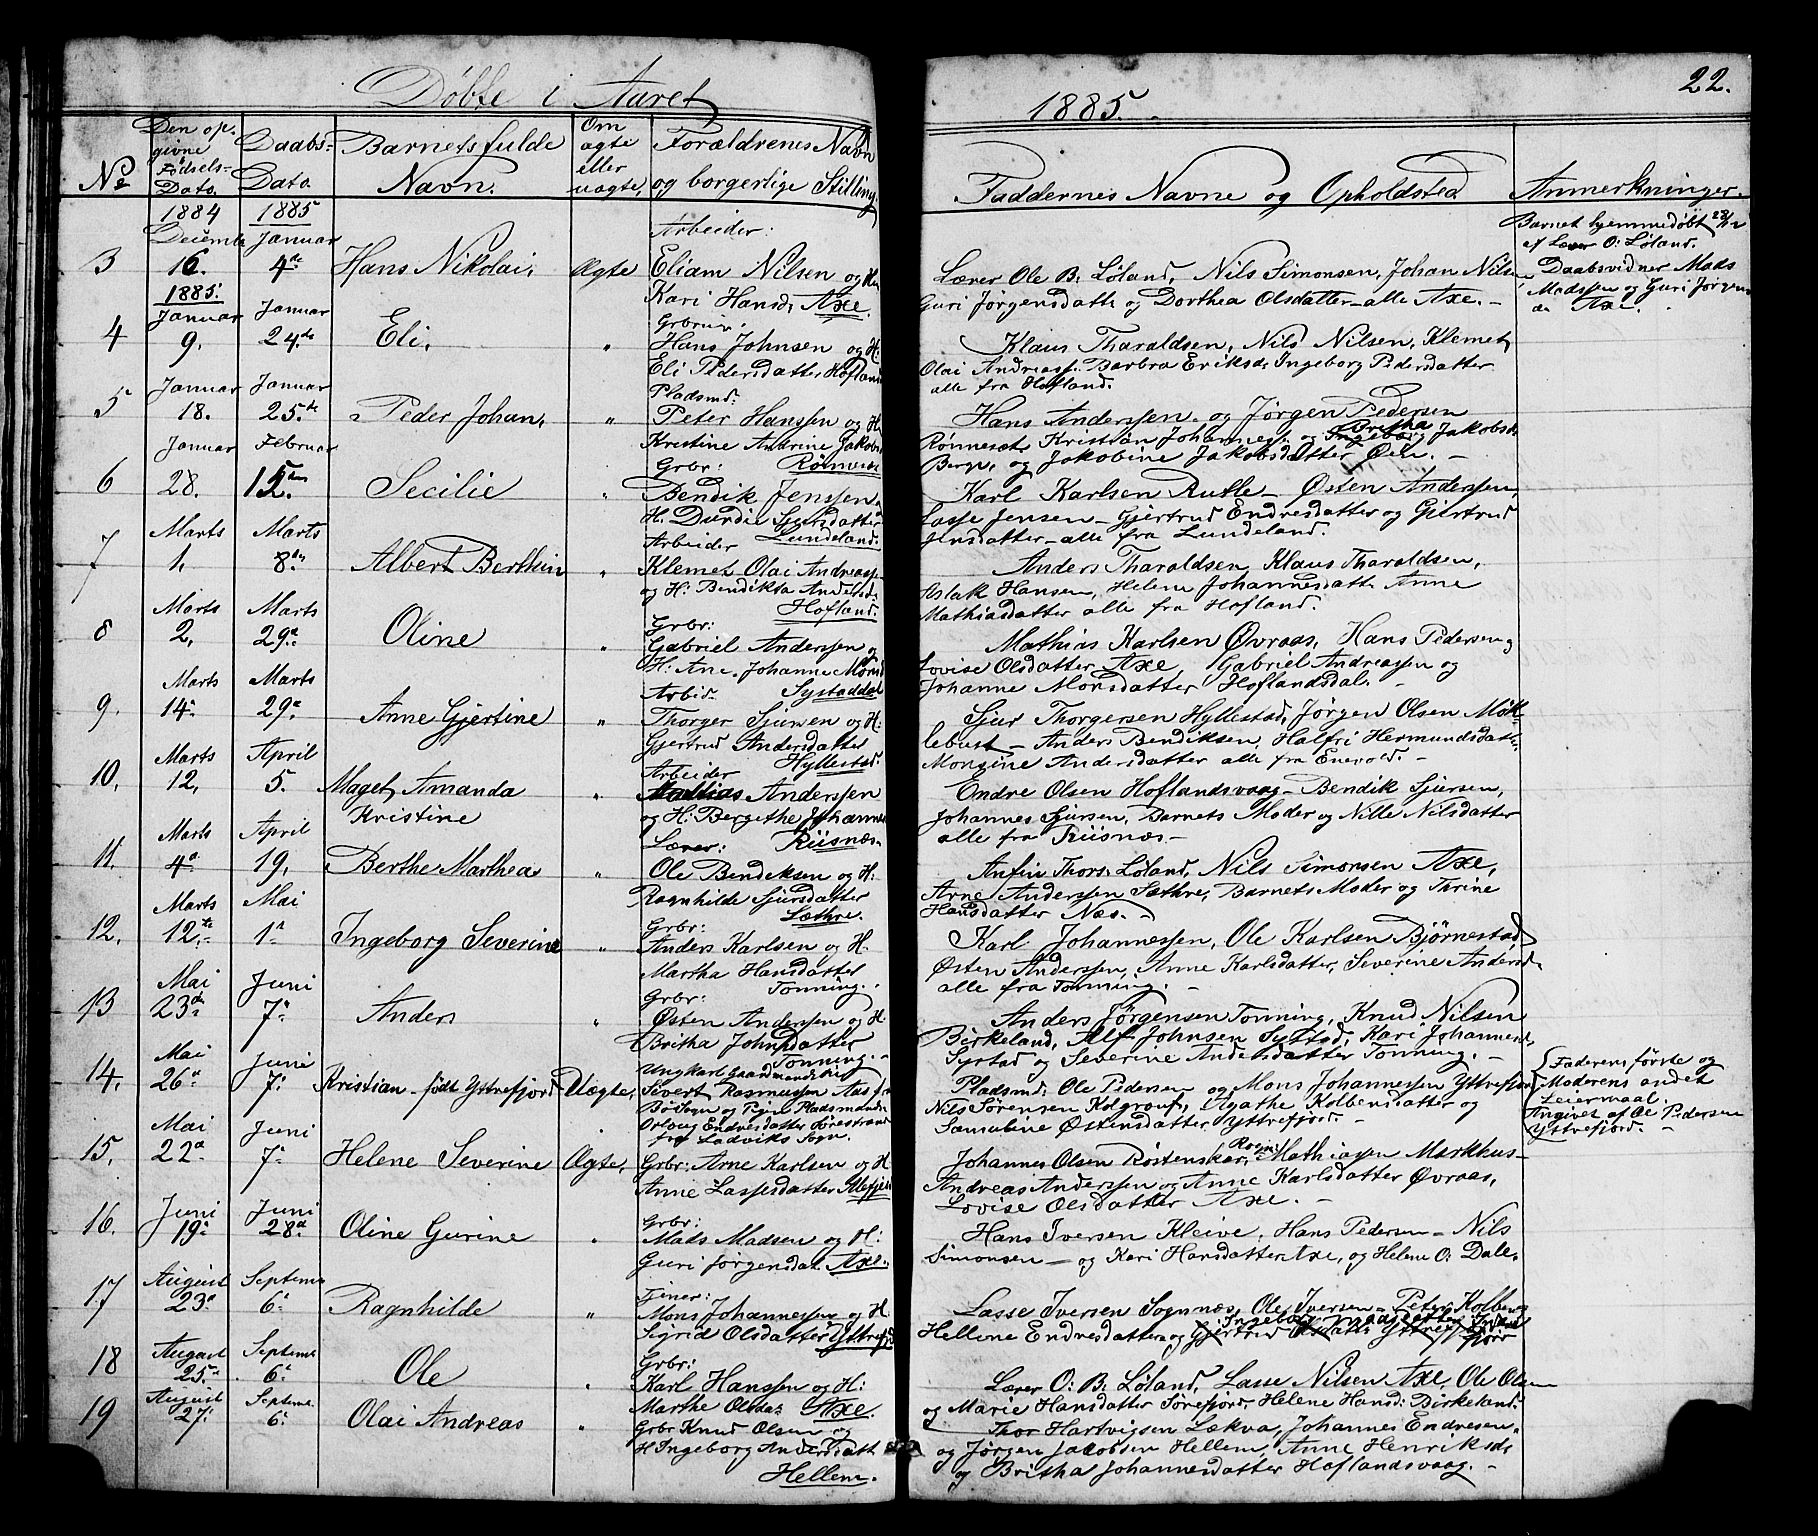 Døbte i Aaret
1885.
22.
No
Den op-
givne
Fødsels-
Dato.
Daabs-
Dato.
Barnets fulde
Navn.
Om
ægte
eller
uægte,
Forældrenes Navn
og borgerlige Stilling
Faddernes Navne og Opholdsted
Anmerkninger.
1884
1885
3
16.
Januar
4de
Hans Nikolai,
Ægte
Arbeider:
Eliam Nilsen og
Kari Hansd. Axe.
Lærer Ole B. Løland, Nils Simonsen, Johan Nils
Guri Jørgensdatt. og Dorthea Olsdatter alle Axe. -
Barnet hjemmedøbt
af Lærer O. Løland.
Daabsvidner Mads
Madssen og Guri Jørgens
Axe.
1885:
4
Januar
9.
Januar
24de
Eli,
"
Hans Johnsen og H.
Eli Pedersdatter Hofland
Klaus Tharaldsen, Nils Nilsen, Klemet
Olai Andreass. Barbra Eriksd. Ingeborg Pedersdatter
alle fra Hofland.
5
Januar
18.
Januar
25de
Peder Johan,
"
Pladsmd:
Peter Hanssen og H.
Kristine Jakobs
Hans Anderssen og Jørgen Pedersen
Rønneset Kristian Johanness. og Britha Jakobsd.
Berge, og Jakobine Jakobsdatter
6
Januar
28.
Februar
15.
Secilie
"
Grbr:
Bendik Jenssen
H. Durdei Sjursdatter
Lundeland.
Karl Karlsen Rutle - Østen Anderssen,
Lasse Jensen - Gjertrud Endresdatter og Gjertrud
Jensdatter - alle fra Lundeland.
7
Marts
1.
Marts
8de
Albert Berthin
"
Arbeider
Klemet Olai Andreass.
og H: Bendikta Andersd.
Hofland.
Anders Tharaldsen, Klaus Tharaldsen,
Aslak Hansen, Helene Johannesdatt. Anne
Mathiasdatter alle fra Hofland.
8
Marts
2.
Marts
29.
Oline
"
Grbr:
Gabriel Anderssen og
H. Ane Johanne
Systaddal
Mathias Karlsen Øvraas, Hans Pedersen og
Lovise Olsdatter Axe Gabriel Andreassen og
Johanne Monsdatter Hoflandsdal. -
9.
Marts
14.
Marts
29.
Anne Gjertine
"
Arbid.
Thorger Sjursen og H:
Gjertrud Andersdatter
Hyllestad.
Sjur Thorgersen Hyllestad, Jørgen Olsen Møk-
lebust - Anders Bendiksen, Halfri Hermundsdatt.
Monsine Andersdatter alle fra Enevold. -
10.
Marts
12.
April
5.
Maget Amanda
Kristine
"
Arbeider
Mathias Anderssen
og H: Bergethe Johannes
Riisnæs.
Endre Olsen Hoflandsvaag - Bendik Sjursen,
Johannes Sjursen, Barnets Moder og Nille Nilsdatter
alle fra Riisnæs -
11.
Marts
4.
April
19,
Berthe Marthea
"
Lærer:
Ole Bendiksen og H:
Ragnhilde Sjursdatter
Sæthre.
Anfin Thors. Løland, Nils Simonsen Axe,
Arne Anderssen Sæthre, Barnets Moder og Thrine
Hansdatter Næs. -
12.
Marts
12te
Mai
1.
Ingeborg Severine
"
Grbr:
Anders Karlsen og H.
Martha Hansdatter
Tonning.
Karl Johannessen, Ole Karlsen Bjørnestad
Østen Anderssen, Anne Karlsdatter, Severine Andersd.
alle fra Tonning. -
13
Mai
23de
Juni
7.
Anders
"
Grbr:
Østen Anderssen og H.
Britha Johnsdatter
Tonning. -
Anders Jørgensen Tonning, Knud Nilsen
Birkeland, Alf Johnsen Systad, Kari Johannesd.
Systad og Severine Andersdatter Tonning. -
14.
Mai
26.
Juni
7.
Kristian - født Yttrefjord
Uægte,
Ungkarl
Sivert Rasmussen Aas fra
Bø Sogn og Pigen Pladsmands
Endresdatter
fra Ladviks Sogn.
Pladsmd. Ole Pedersen og Mons Johannessen Yttrefjord
Nils Sørensen Kolgrouf, Agathe Kolbensdatter og
Samuline Østensdatter Yttrefjord. -
Faderens første og
Moderens andet
Leiermaal.
Angivet af Ole Pedersen
Yttrefjord. -
15.
Mai
22.
Juni
7.
Helene Severine
Ægte,
Grbr: Arne Karlsen og H
Anne Lassesdatter
Johannes Olsen Røstenskar, Mathiasen Markhus -
Andreas Anderssen og Anne Karlsdatter Øvraas,
Lovise Olsdatter Axe. -
16.
Juni
19.
Juni
28.
Oline Gurine
"
Grbr:
Mads Madsen og H:
Guri Jørgensdat. Axe.
Hans Iversen Kleive, Hans Pedersen - Nils
Simonsen - og Kari Hansdatter Axe, og Helene O: Dale.
17
August
23.
Septemb
6.
Ragnhilde
"
Tjener:
Mons Johannessen og H.
Sigrid Olsdatter Yttrefjd.
Lasse Iversen Sognnæs, Ole Iversen - Peter Kolbens
Hellene Endresdatter og Gjertrud Yttrefjord
18
August
25.
Septemb
6.
Ole
"
Grbr:
Karl Hanssen og H:
Marthe Olsdat. Axe.
Lærer O: B. Løland, Lasse Nilsen Axe, Ole Olsen
og Marie Hansdatter Sørefjord, Helene Hansd. Birkeland.
19
August
27.
Septemb.
6.
Olai Andreas
"
Grbr. Knud Olsen og
H. Ingeborg Andersdatt.
Hellem.
Thor Hartvigsen Lækva, Johannes Endresen
og Jørgen Jacobsen Hellem, Anne Henriksd.
og Britha Johannesdatter Hoflandsvaag. -